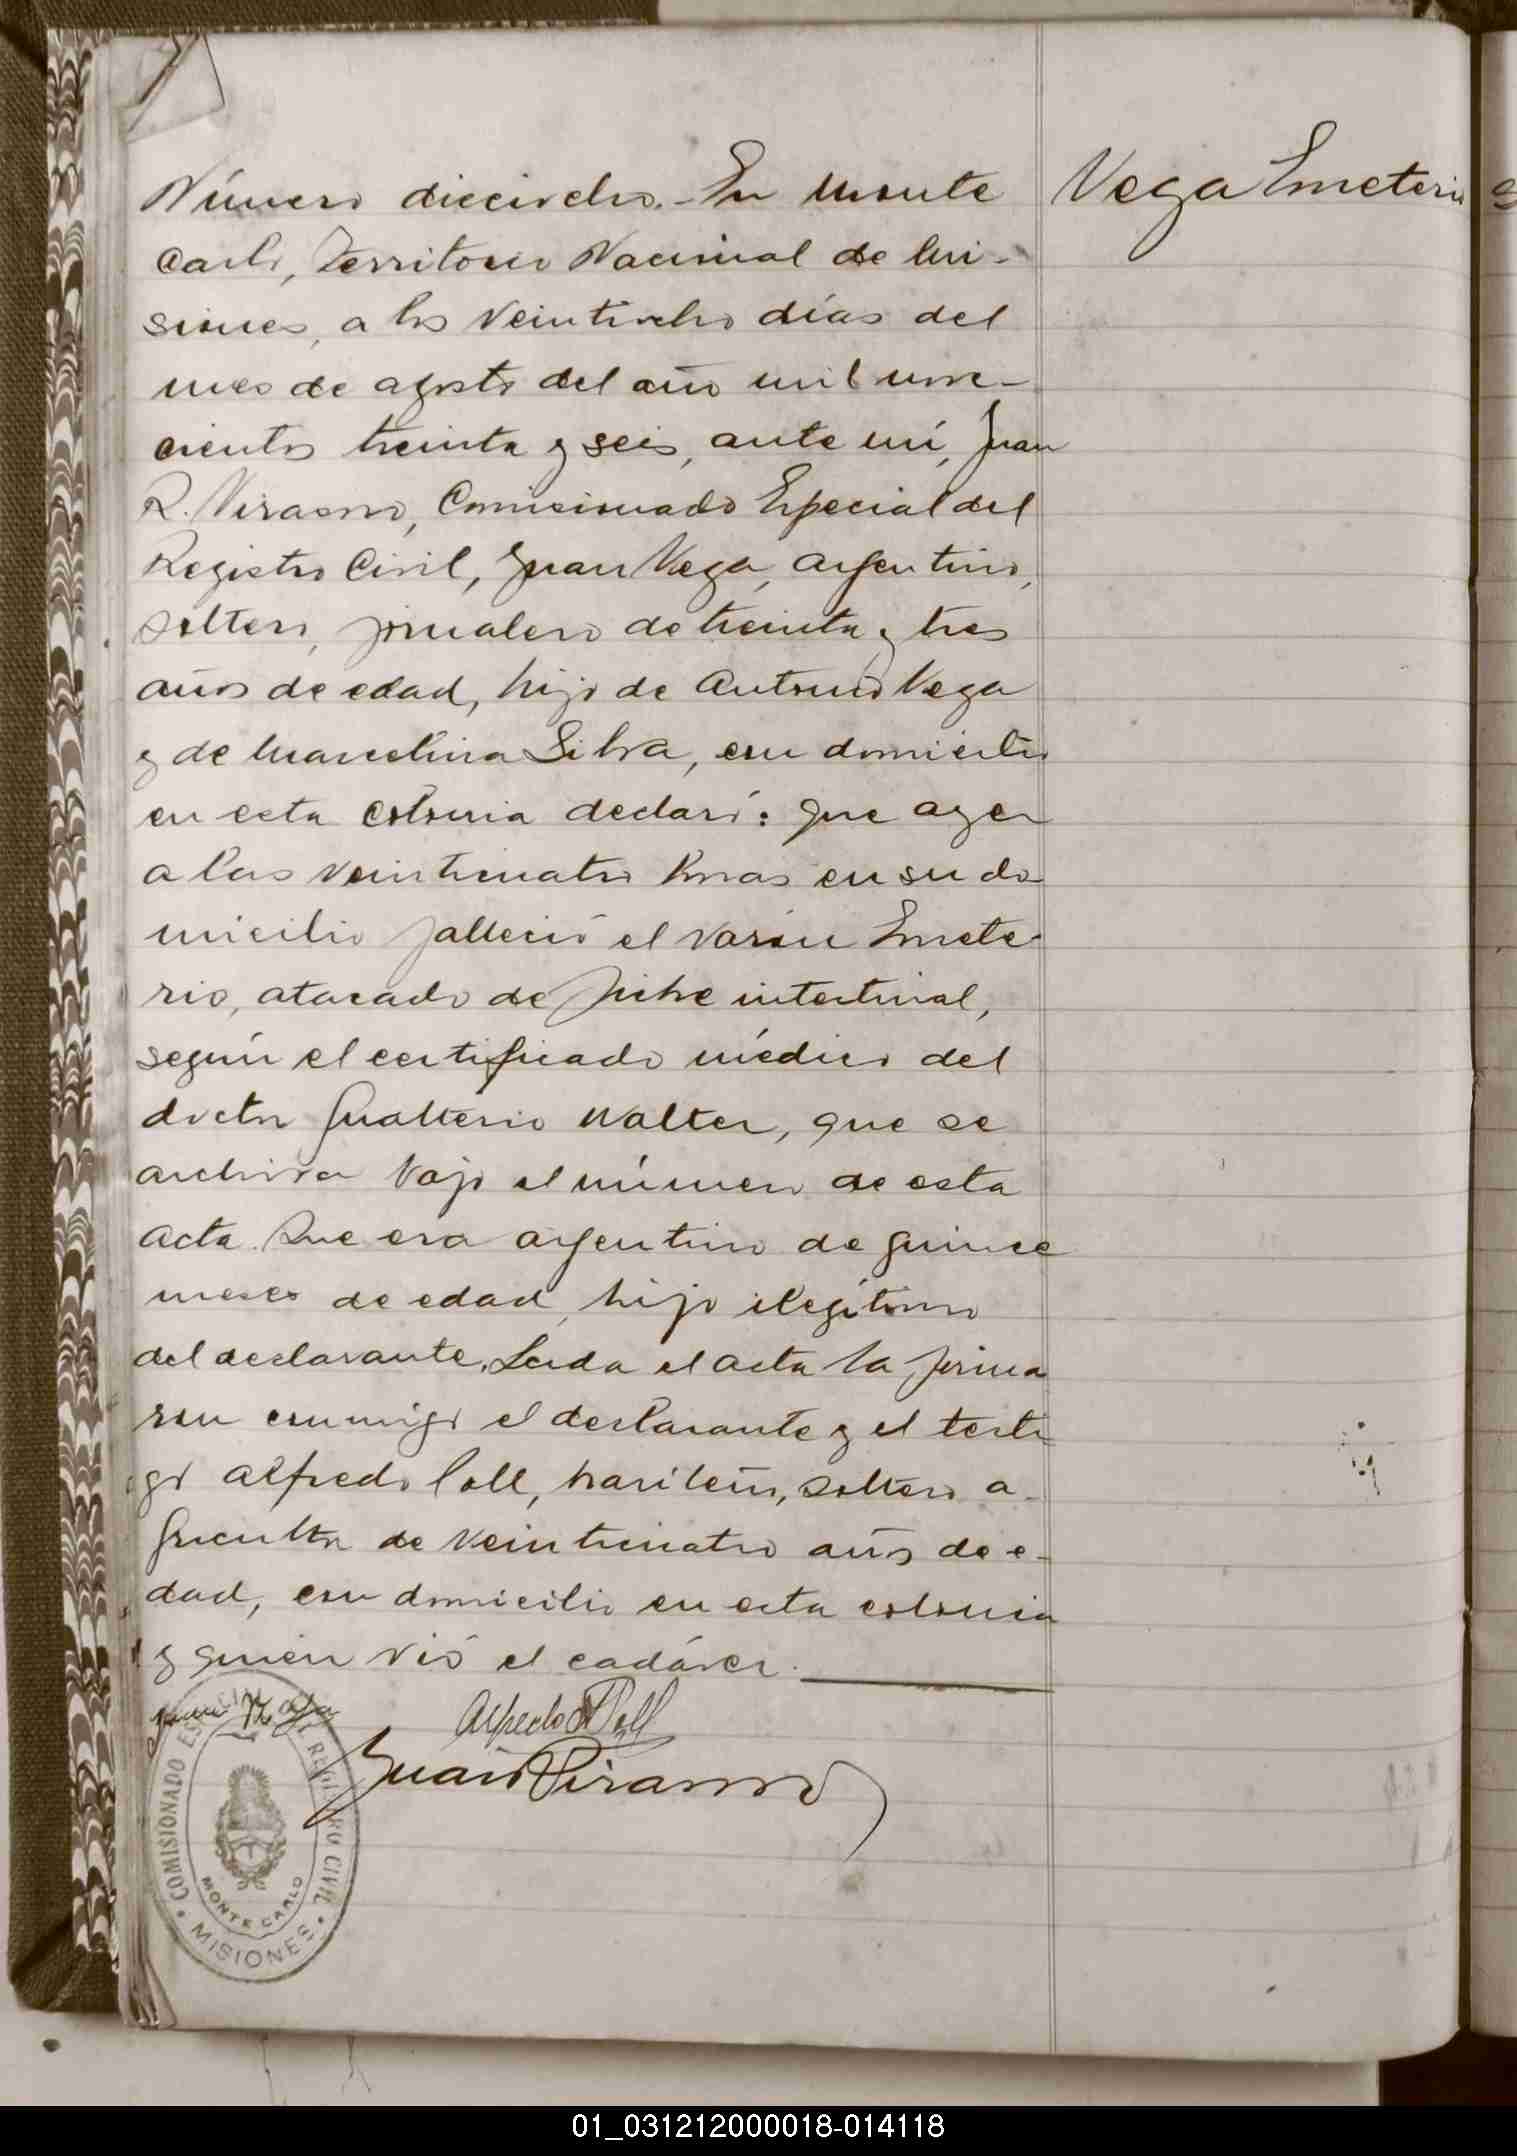 Número dieciocho.- En Monte
Carlo, Territorio Nacional de Mi-
siones, a los veintiocho días del
mes de agosto del año mil nove-
cientos treinta y seis, ante mí, Juan
R. Virasoro, Comisionado Especial del
Registro Civil, Juan Vega, argentino,
soltero, jornalero de treinta y tres
años de edad, hijo de Antonio Vega
y de Marcelina Silva, con domicilio
en esta colonia declaró: que ayer
a las veinticuatro horas en su do-
micilio falleció el varón Emete-
rio, atacado de fiebre intestinal,
según el certificado médico del
doctor Gualterio Walter, que se
archiva bajo el número de esta
acta. Que era argentino de quince
meses de edad, hijo ilegítimo
del declarante. Leída el acta la firma
ron conmigo el declarante y el testi
go Alfredo Poll, brasileño, soltero a-
gricultor de veinticuatro años de e-
dad, con domicilio en esta colonia
y quien vió el cadáver.
Juan Vega
Alfredo Poll
Juan R Virasoro
Vega Emeterio
COMISIONADO ESPECIAL DEL REGISTRO CIVIL
MONTE CARLO
MISIONES
01_031212000018-014118